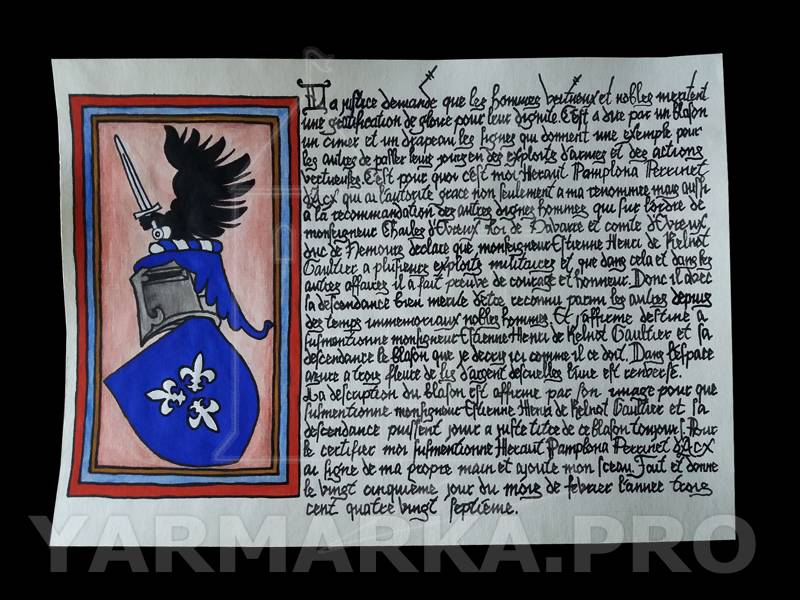 La justice demande que les hommes vertueux et nobles meritent
une gratification de gloire pour leur dignite. C'est a dire par un blason
un cimer et un drapeau les signes qui donnent une exemple pour
les autres de passer leurs jours en des exploits d'armes et des actions
vertueuses. C'est pour quoi c'est moi Heraut Pamplona Perrinet
qui au l'autorite grace non seulement a ma renommee mais aussi
a la recommandation des autres dignes hommes qui sur l'ordre de
monseigneur Charles d'Evreux Roi de Navarre et comte d'Evreux
duc de Nemours declare que monseigneur Estienne Henri de Kelnot
Gaultier a plusieurs exploits militaires et que dans cela et dans les
autres affaires il a fait preuve de courage et honneur. Donc il avec
sa descendance bien merite d'etre reconnu parmi les autres depuis
des temps immemoriaux nobles hommes. Et j'affirme destine a
susmentionne monseigneur Estienne Henri de Kelnot Gaultier et sa
descendance le blason que je decris ici comme il ce doit. Dans l'espace
azure a trois fleurs de lis d'argent desquelles l'une est renverse.
La description du blason est affirme par son image pour que
susmentionne monseigneur Estienne Henri de Kelnot Gaultier et sa
descendance puissent jouir a juste titre de ce blason toujours. Pour
le certifier moi susmentionne Heraut Pamplona Perrinet
ai signe de ma propre main et ajoute mon sceau. Fait et donne
le vingt cinquieme jour du mois de fevrier l'annee trois
cent quatre vingt septieme.
YARMARKA.PRO